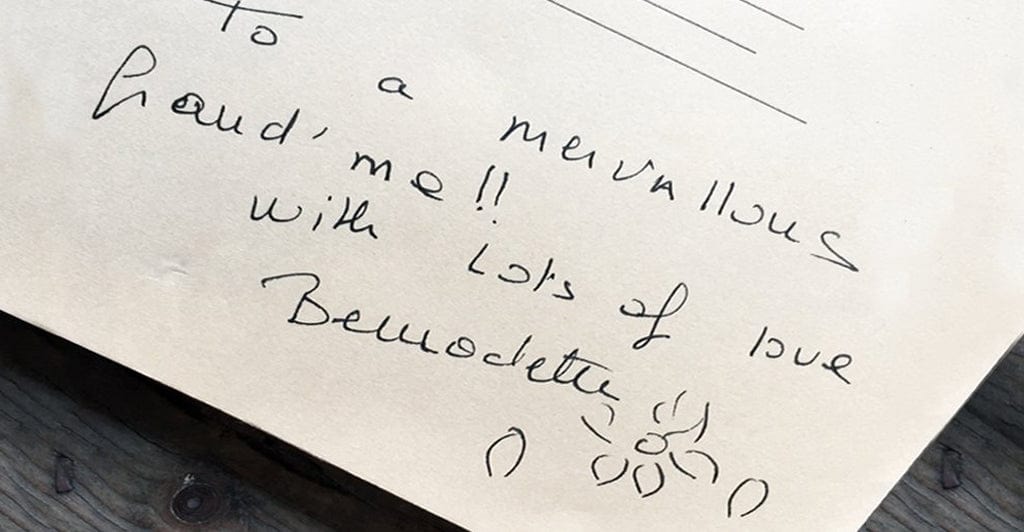 To a mervallous
Grand'me!!
With Lots of love
Bernadette